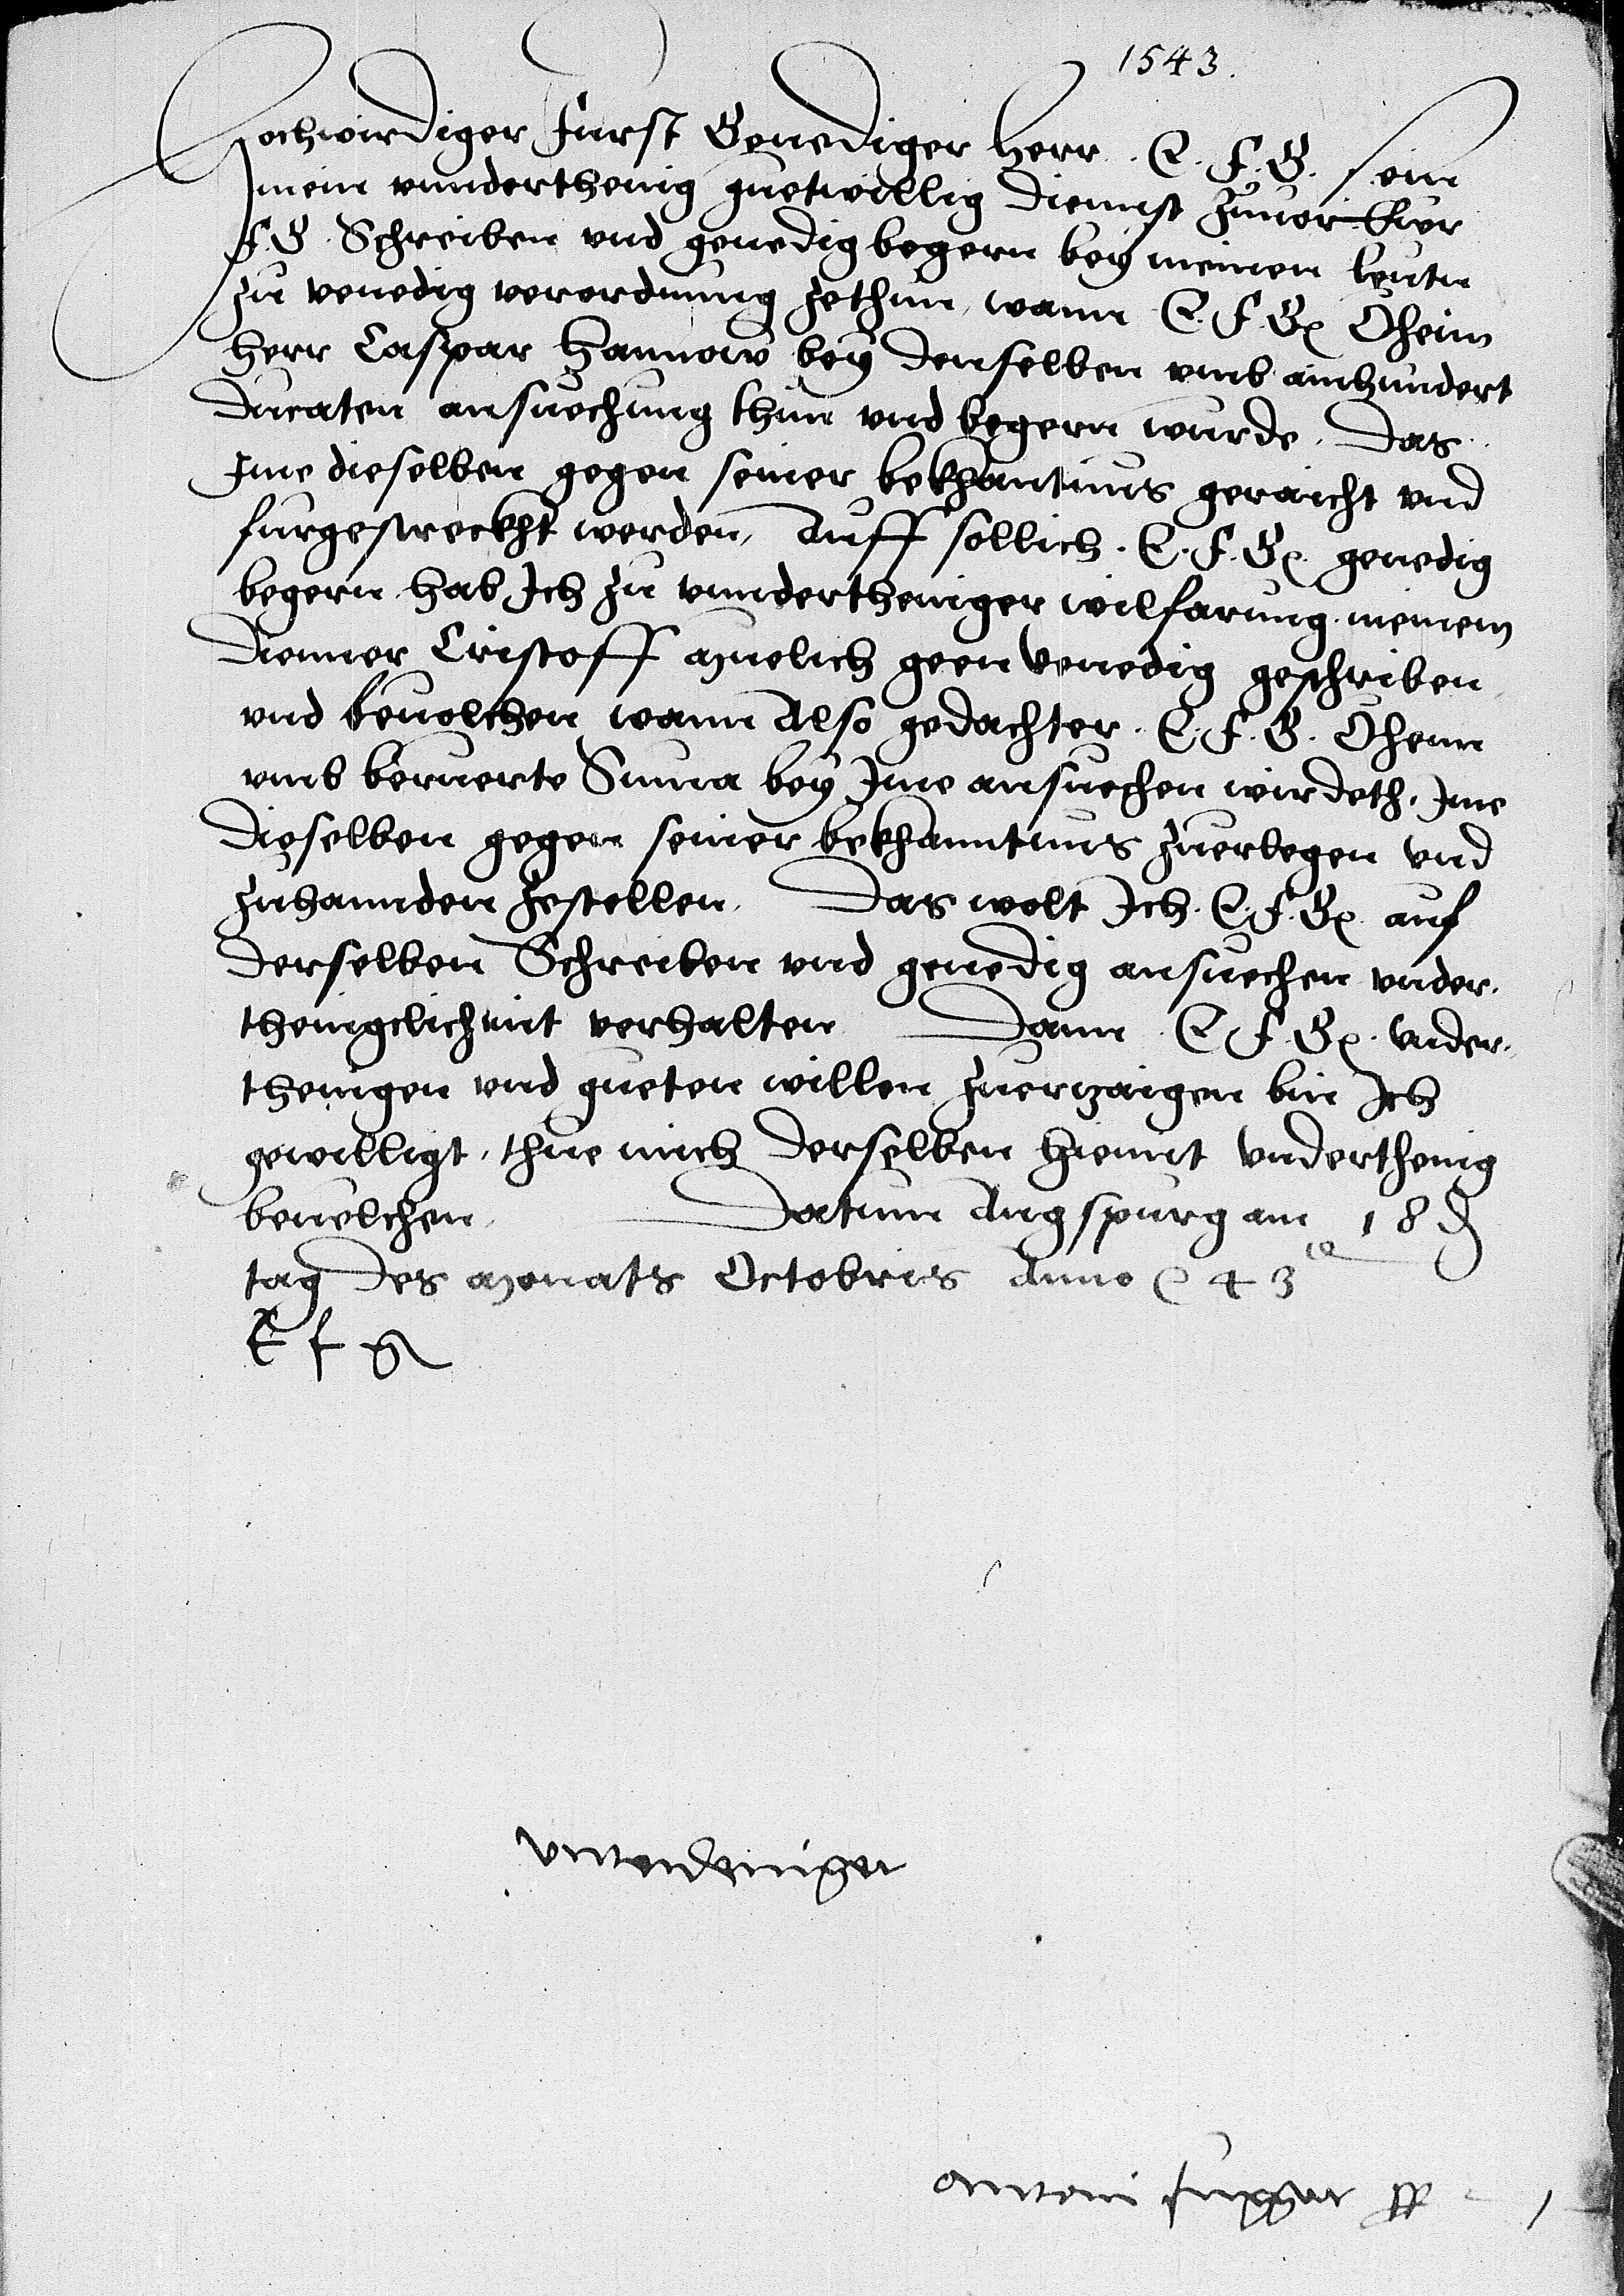 1543.
Hochwirdiger Furst Genediger Herr. E. F. G. sein
mein vnnderthenig guetwillig diennst zuuor Eur
F. G. Schreiben vnd genedig begern bey meinen leuten
zu venedig verordnung zethun, wann E. F. G. Öheim
Herr Caspar Hannow bey denselben vmb ainhundert
Ducaten ansuechung thun vnd begern wurde. das
Ime dieselben gegen seiner bekhantnus geraicht vnd
furgestreckht werden, Auff sollich. E. F. G. genedig
begern hab Ich zu vnndertheniger wilfarung meinem
diener Cristoff Muelich geen Venedig geschriben
vnd beuolchen, wann Also gedachter. E. F. G. Öhem
vmb beruerte Suma bey Ime ansuechen wirdeth, Ime
dieselben gegen seiner bekhanntnus zuerlegen vnd
zuhannden zestellen. Das wolt Ich. E. F. G. auf
derselben Schreiben vnd genedig ansuechen vnder-
thenigclich nit verhalten Dann. E. F. G. vnder-
thenigen vnd gueten willen zuerzaigen bin Ich
gewilligt, thue mich derselben hiemit vnderthenig
beuelchen. Datum Augspurg am 18
tag des Monats Octobris Anno 43
E f g
vnnderthenger
Antoni fugger